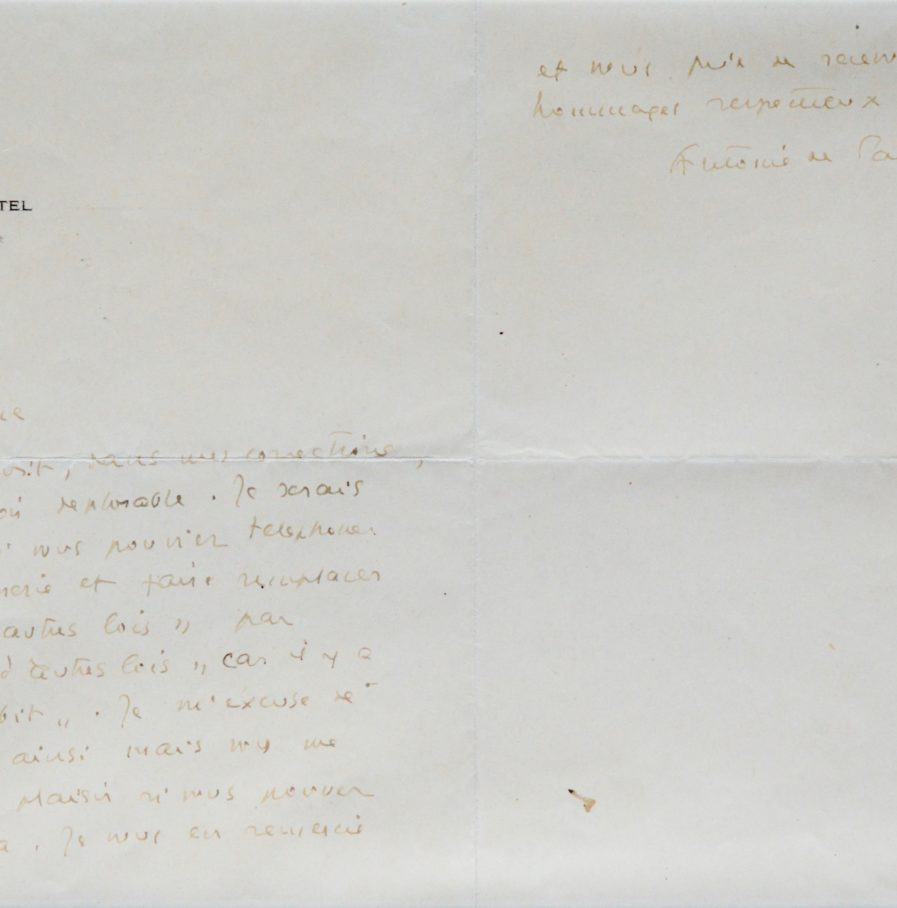 TEL
, dans mes corrections,
déplorable. Je serais
vous pouviez téléphoner
et faire remplacer
autres lois" par
d'autres lois", car il y a
. Je m'excuse de
ainsi mais vous me
plaisir si vous pouvez
. Je vous en remercie
et vous prie de
hommages respectueux
Antoine de